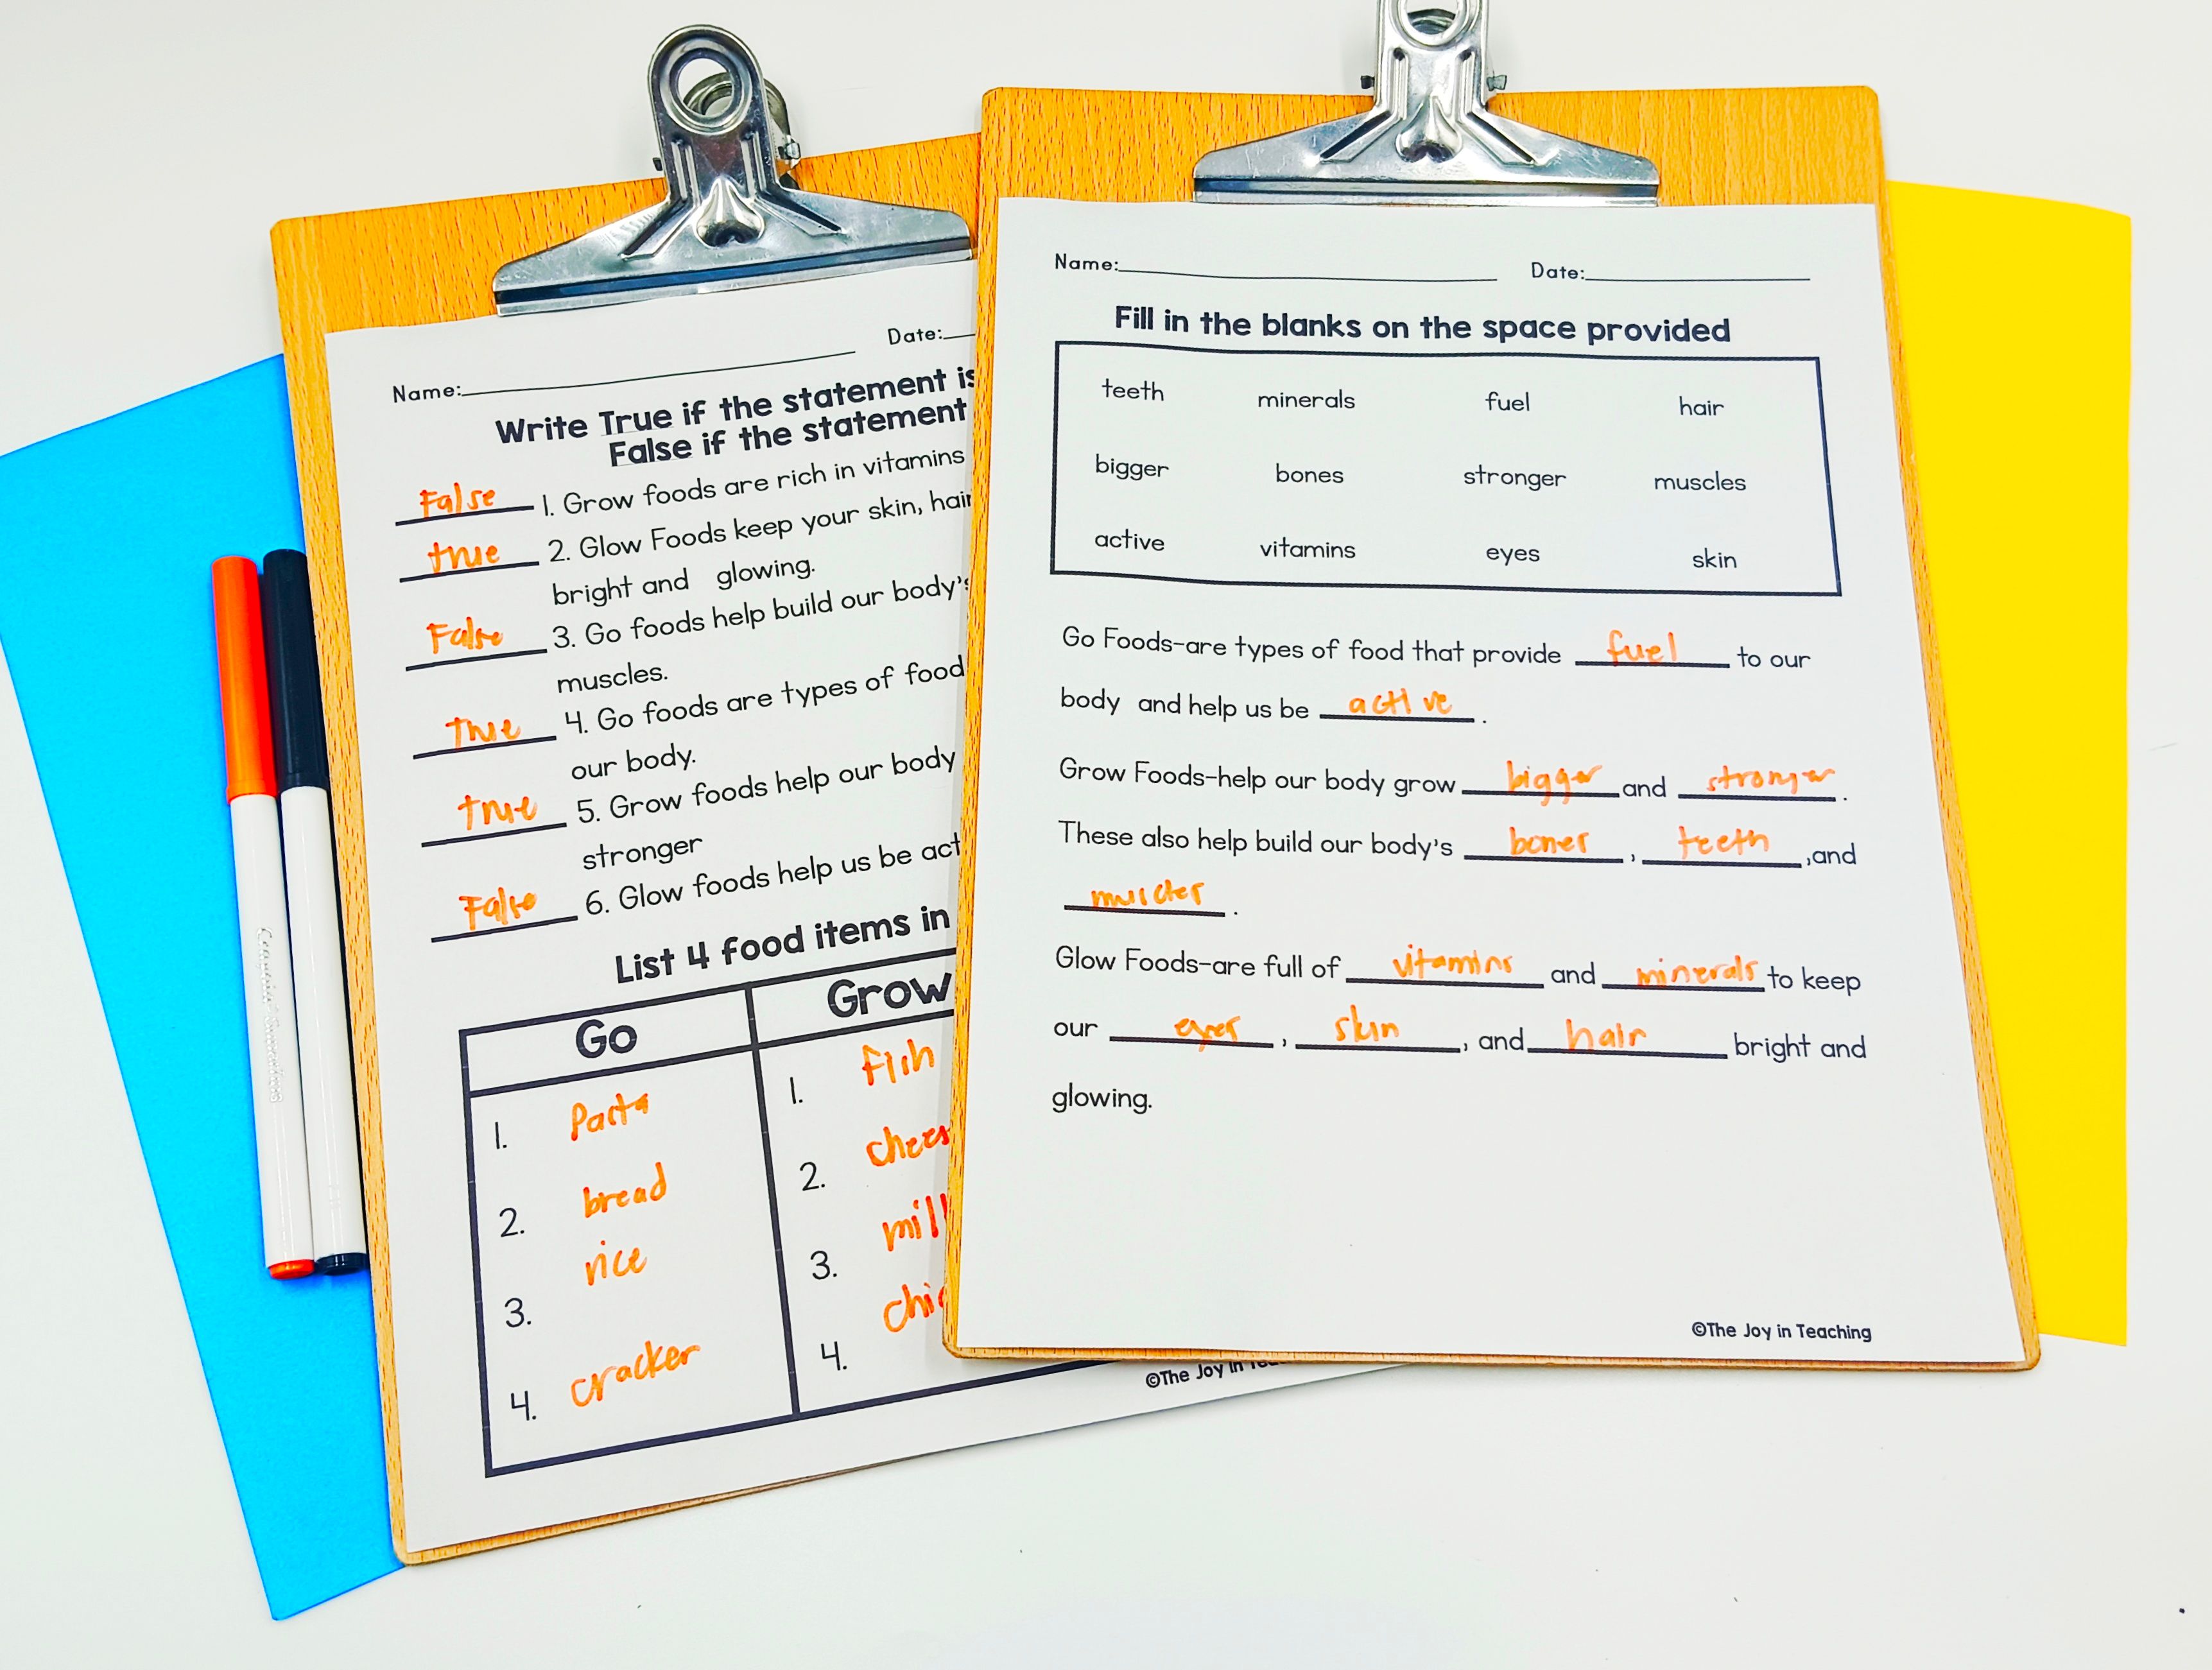 Name: Date:
Write True if the statement is
False if the statement
False 1. Grow foods are rich in vitamins
true 2. Glow Foods keep your skin, hair
bright and glowing.
False 3. Go foods help build our body's
muscles.
True 4. Go foods are types of food
our body.
true 5. Grow foods help our body
stronger
False 6. Glow foods help us be act
List 4 food items in
Go Grow
1. Pasta 1. Fish
2. bread 2. chees
3. rice 3. mil
4. cracker 4. chi
©The Joy in Tea
Name: Date:
Fill in the blanks on the space provided
teeth minerals fuel hair
bigger bones stronger muscles
active vitamins eyes skin
Go Foods-are types of food that provide fuel to our
body and help us be active .
Grow Foods-help our body grow bigger and stronger .
These also help build our body's bones , teeth ,and
muscles .
Glow Foods-are full of vitamins and minerals to keep
our eyes , skin , and hair bright and
glowing.
©The Joy in Teaching